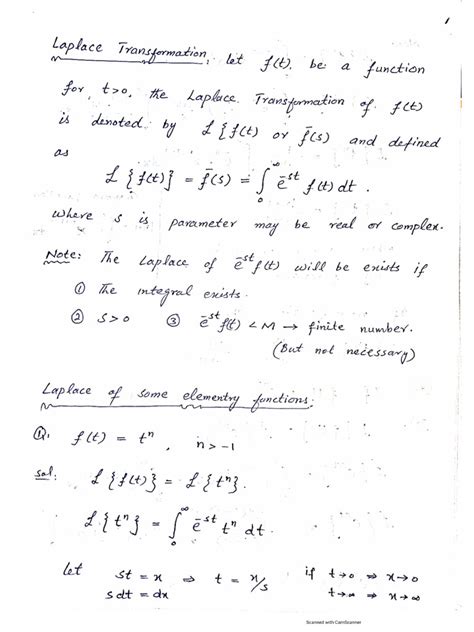 1
Laplace Transformation: let f(t). be a function
for, t>0, the Laplace Transformation of f(t)
is denoted by ℒ{f(t) or f̄(s) and defined
as
ℒ{f(t)} = f̄(s) = ∫₀^∞ e^{-st} f(t) dt.
where s is parameter may be real or complex.
Note: The Laplace of e^{-st} f(t) will be exists if
① The integral exists.
② s>0 ③ e^{-st} f(t) < M → finite number.
(But not necessary)
Laplace of some elementry functions:
Q. f(t) = tⁿ, n>-1
sol: ℒ{f(t)} = ℒ{tⁿ}.
ℒ{tⁿ} = ∫₀^∞ e^{-st} tⁿ dt.
let st = x ⇒ t = x/s if t→0 ⇒ x→0
s dt = dx t→∞ ⇒ x→∞
Scanned with CamScanner